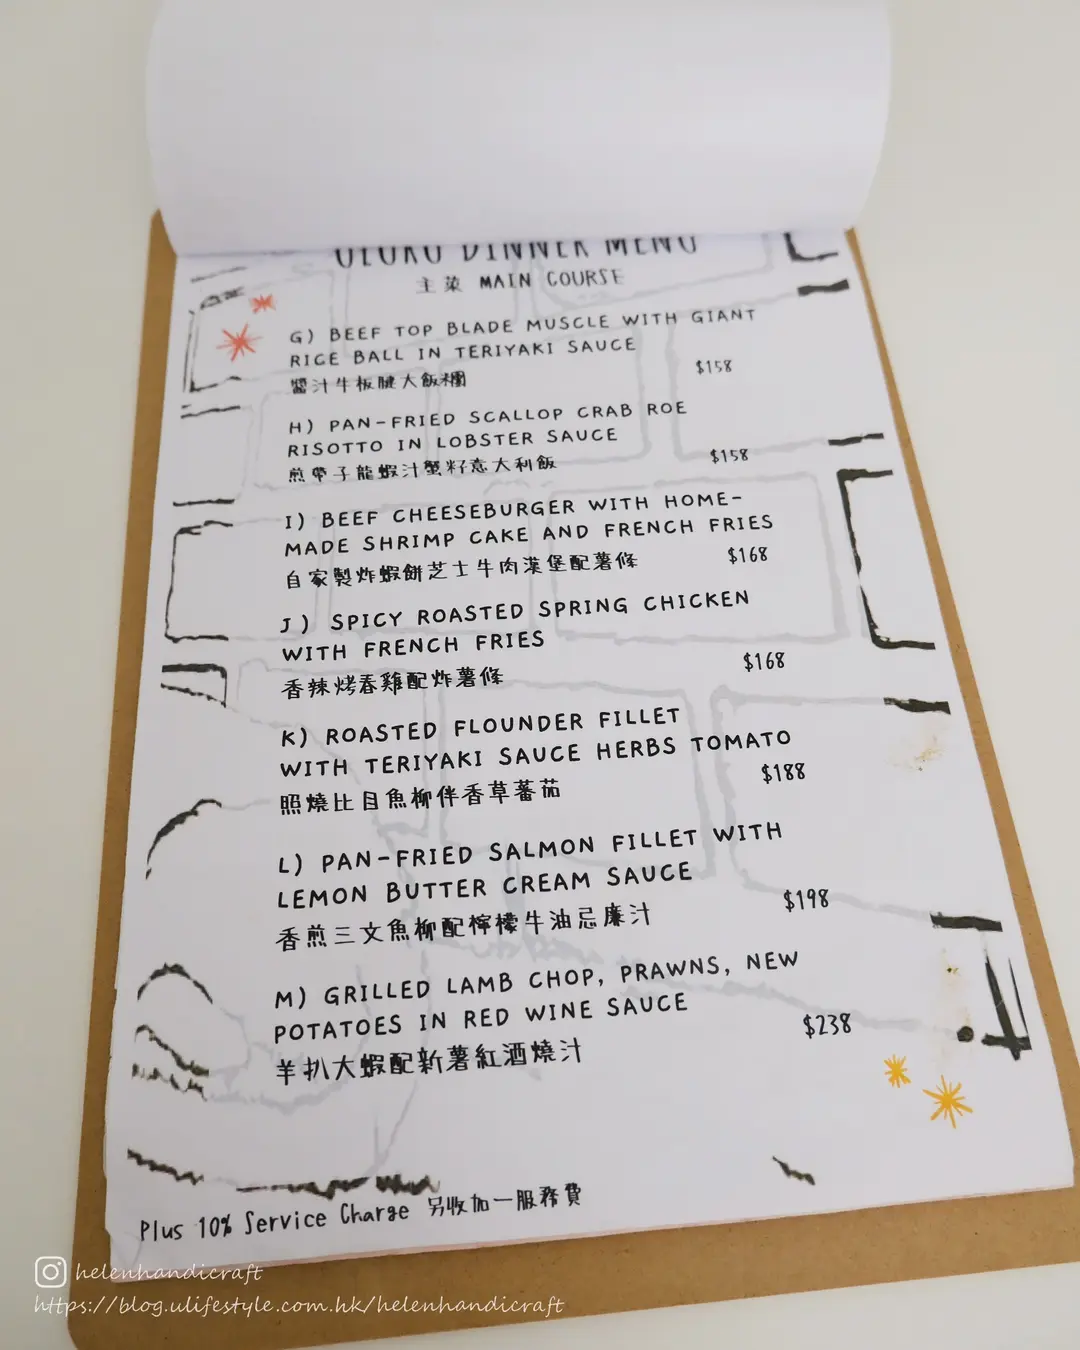 DINNER MENU
主菜 MAIN COURSE
G) BEEF TOP BLADE MUSCLE WITH GIANT
RICE BALL IN TERIYAKI SAUCE
醬汁牛板腱大飯糰
$158
H) PAN-FRIED SCALLOP CRAB ROE
RISOTTO IN LOBSTER SAUCE
煎帶子龍蝦汁蟹籽意大利飯
$158
I) BEEF CHEESEBURGER WITH HOME-
MADE SHRIMP CAKE AND FRENCH FRIES
自家製炸蝦餅芝士牛肉漢堡配薯條
$168
J) SPICY ROASTED SPRING CHICKEN
WITH FRENCH FRIES
香辣烤春雞配炸薯條
$168
K) ROASTED FLOUNDER FILLET
WITH TERIYAKI SAUCE HERBS TOMATO
照燒比目魚柳伴香草蕃茄
$188
L) PAN-FRIED SALMON FILLET WITH
LEMON BUTTER CREAM SAUCE
香煎三文魚柳配檸檬牛油忌廉汁
$198
M) GRILLED LAMB CHOP, PRAWNS, NEW
POTATOES IN RED WINE SAUCE
羊扒大蝦配新薯紅酒燒汁
$238
Plus 10% Service Charge 另收加一服務費
helenhandicraft
https://blog.ulifestyle.com.hk/helenhandicraft